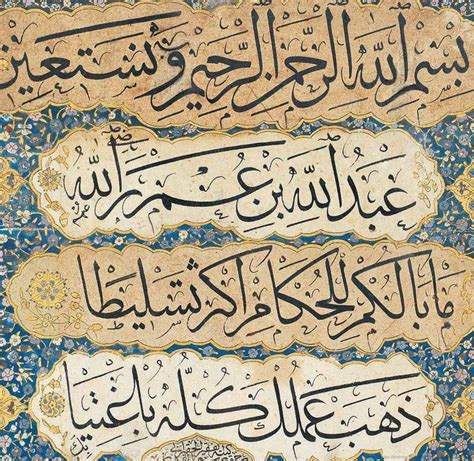 بسم الله الرحمن الرحيم ونستعين
عبد الله بن عمر رر الله
ما بالكم للحكام اكثر تسليطا
ذهب عملك كله باغتيا